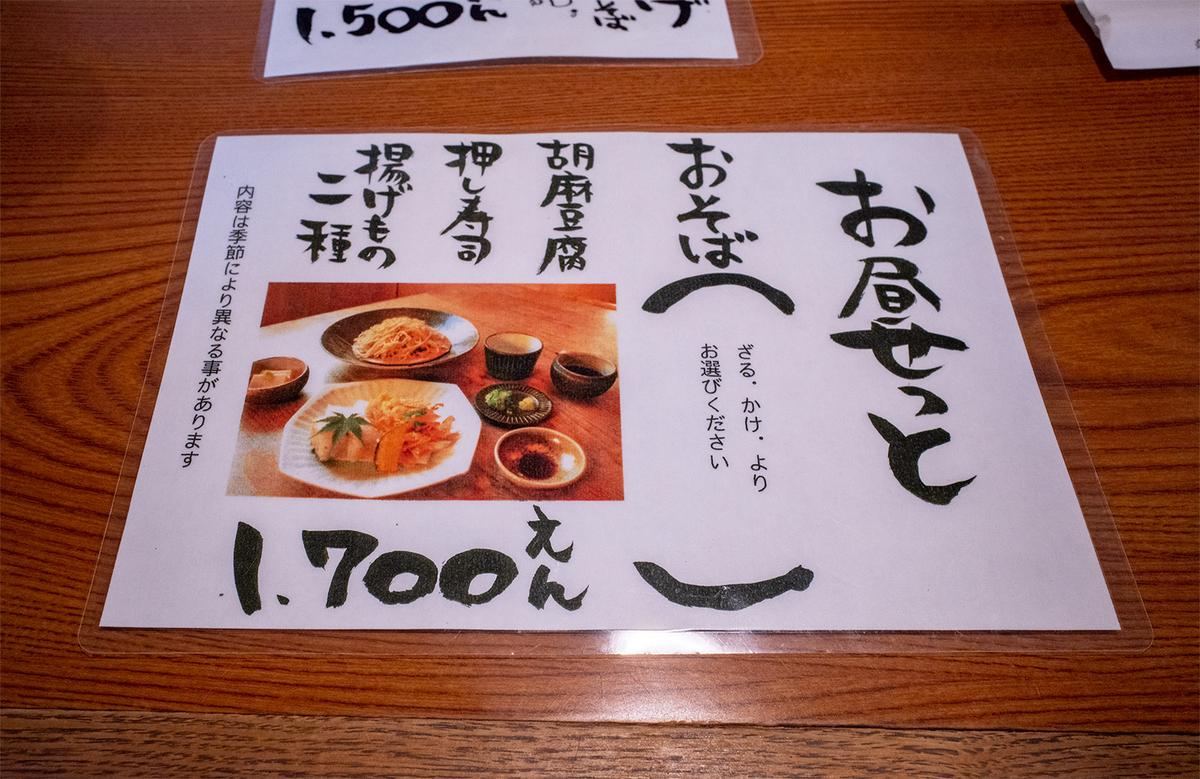 1.500えん
そば
お昼せっと
おそば（
ざる・かけ・より
お選びください
）
胡麻豆腐
押し寿司
揚げもの
二種
内容は季節により異なる事があります
1.700えん